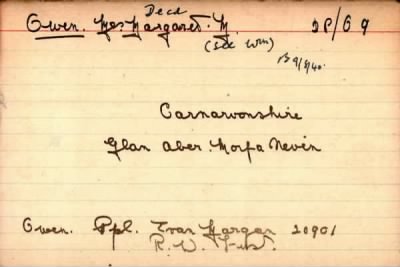 Decd
Owen. Mrs Margaret. M. 28/69
(see Wm)
B 9/5/40.
Carnarvonshire
Glan Aber. Morfa Nevin
Owen. Ppl. Evan Morgan 20901
R. W. Fus.